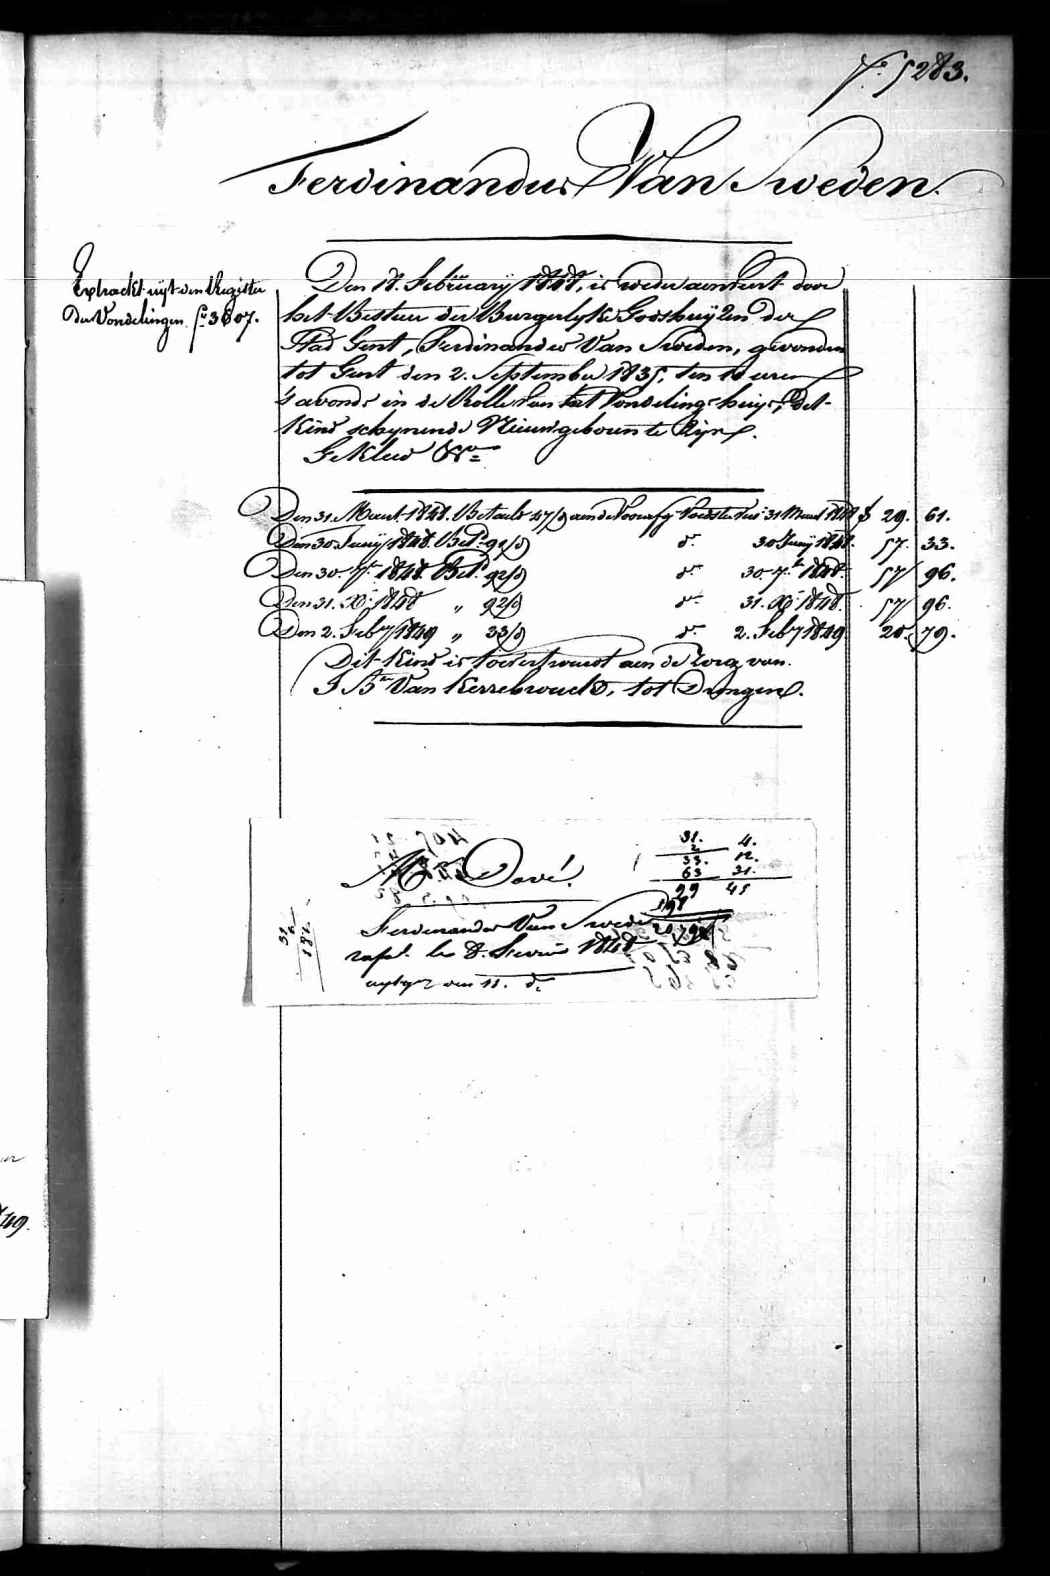 fo. 5283.
Ferdinandus Van Sweden.
Extrackt uijt den Register
Der Vondelingen fo. 3807.
Den 8. February 1848, is weder aenveert door
het Bestuer der Burgerlyke Godshuyzen der
Stad Gent, Ferdinandus Van Sweden, gevonden
tot Gent den 2. September 1835, ten 10 uren
's avonds in de Rolle van het Vondelinghuys, dit
Kind schynende Nieuwgeboren te zyn.
Gekleed &a
Den 31. Maert 1848. Betaelt 47/d aen de Voorsz. Voedster tot 31 Maert 1848 f 29. 61.
Den 30. Junij 1848. Bet.d 91/d do. 30 Junij 1848. 57. 33.
Den 30. 7.b 1848. Bet.d 92/d do. 30. 7.b 1848. 57 96.
Den 31. X.b 1848 " 92/d do. 31. X.b 1848. 57 96.
Den 2. Feb.y 1849 " 33/d do. 2. Feb.y 1849 20. 79.
Dit Kind is toevertrouwt aen de zorg van
J. B.te Van Kerrebrouck, tot Drongen.
31. 4.
2 12.
33. 31.
63 45
29
Mr Dové.
Ferdinandus Van Sweden
rapt. le 8. Fevrier 1848
van 11. do